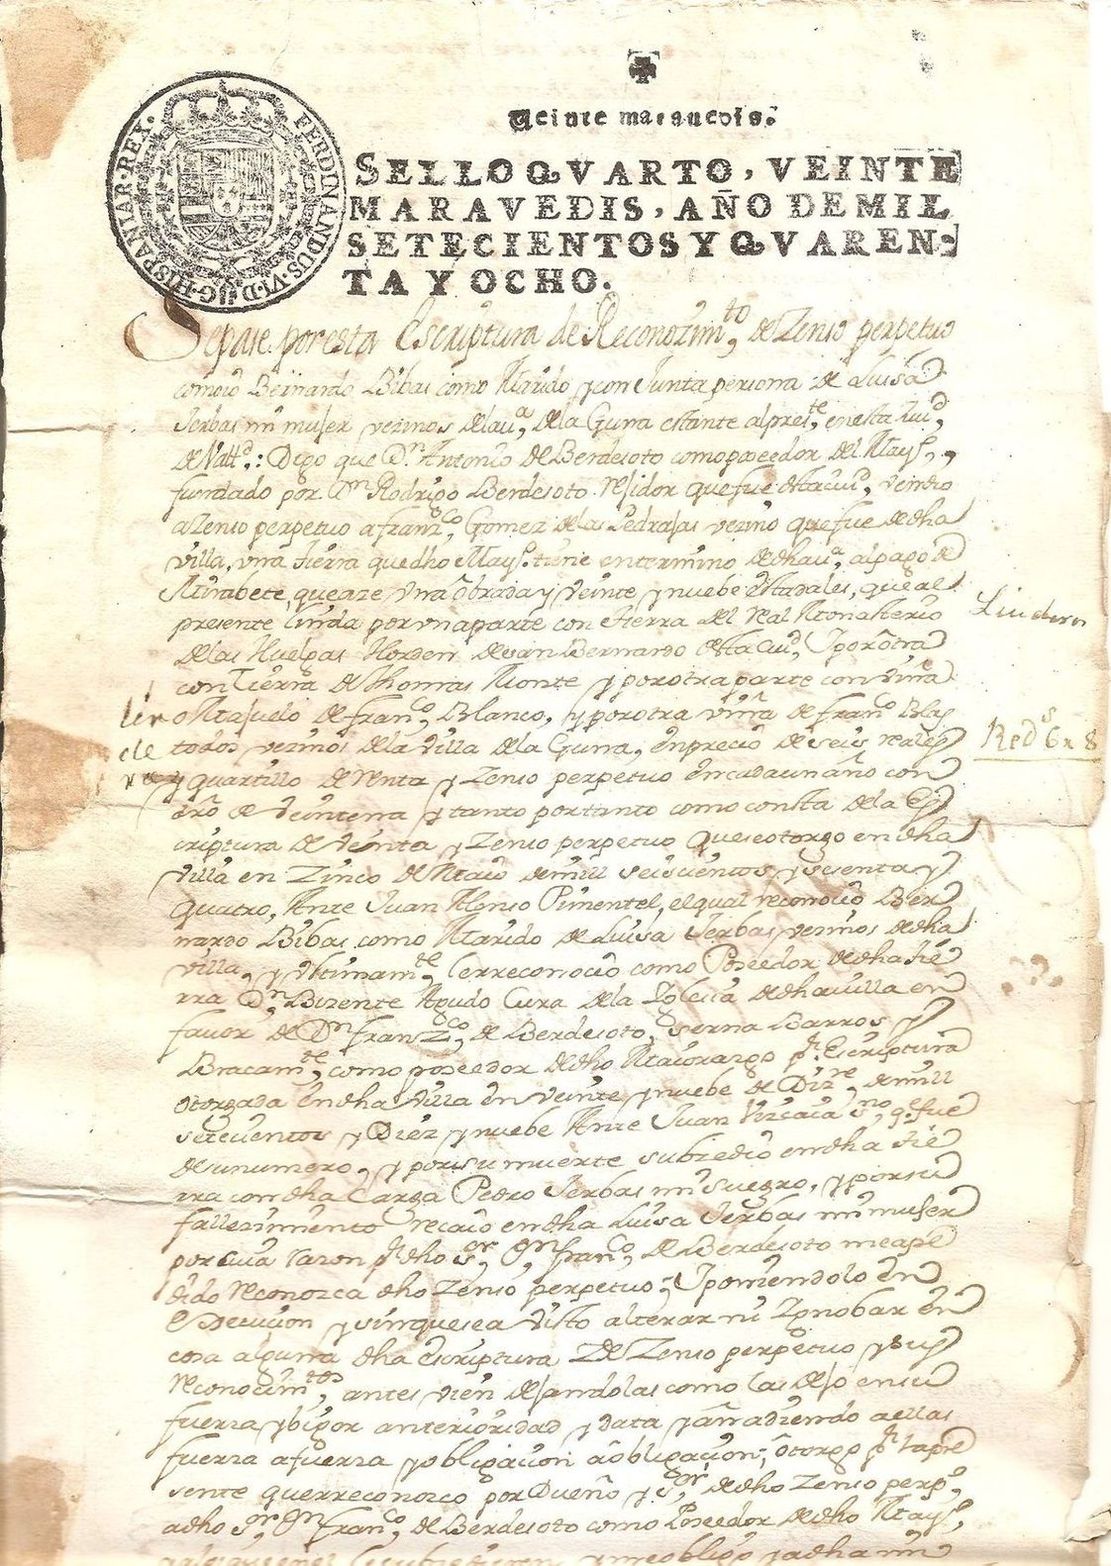 FERDINANDUS·VI·D·G·HISPANIAR·REX·
Veinte marauedis.
SELLO QVARTO, VEINTE
MARAVEDIS, AÑO DE MIL
SETECIENTOS Y QVAREN-
TA Y OCHO.
Sepase por esta Escriptura de Reconozim.to de Zenso perpetuo
como io Bernardo Bibas como Marido y conJunta persona de Luisa
Serbas mi muger vezinos de la u.a de la Guna estante al pres.te en esta Ziu.d
de Vall.d: Digo que D.n Antonio de Berdesoto como poseedor del Mayſ.
fundado por D.n Rodrigo Berdesoto Residor que fue desta ciu.d, vendio
a Zenso perpetuo a fran.co Gomez de las Pedrasas vezino que fue de dha
villa, vna tierra que dho Mayſ. tiene en termino de dha u.a, al pago de
Mirabete, que aze vna obrada y veinte y nuebe estadales, que al
presente linda por vna parte con tierra del Real Monasterio
de las Huelgas Horden de san Bernardo desta Ciu.d, Y por otra
con tierra de Thomas Monte y por otra parte con viña
o Majuelo de fran.co Blanco, y por otra viña de fran.co Blas
todos vezinos de la villa de la Guna, en precio de seis reales
y quartillo de renta y Zenso perpetuo en cada un año con
dro de veintena y tanto por tanto como consta de la Es
criptura de venta y Zenso perpetuo que se otorgo en dha
villa en Zinco de Maio de mill seiscientos y sesenta y
quatro, Ante Juan Alonso Pimentel, el qual reconocio Ber
nardo Bibas como Marido de Luisa Serbas vezinos de dha
villa, y vltimam.te le rreconocio como Poseedor de dha tie
rra D.n Bizente Agudo Cura de la Iglesia de dha villa en
favor de D.n Fran.co de Berdesoto, serna Barros y
Bracam.te, como poseedor de dho Maiorazgo p.r Escriptura
otorgada en dha villa en veinte y nuebe de Diz.re de mill
setecientos y Diez y nuebe Ante Juan Vizcaia s.no q.e fue
de su numero, y por su muerte subzedio en dha tie
rra con dha Carga Pedro Serbas mi suegro, y por su
fallezimiento recaio en dha Luisa Serbas mi muger
por cuia razon p.r dho s.or D.n fran.co de Berdesoto me a pe
dido reconozca dho Zenso perpetuo; Y poniendolo en
execucion y sin que sea visto alterar ni Ynobar en
cosa alguna dha escriptura de Zenso perpetuo y sus
reconozim.tos, antes vien dejandolas como las dejo en su
fuerza y bigor anterioridad y data y añadiendo a ellas
fuerza a fuerza y obligacion a obligacion; otorgo p.r la pre
sente que rreconozco por Dueño y s.or de dho Zenso perp.o
a dho s.or D.n fran.co de Berdesoto como Poseedor de dho Mayſ.
Linderos
Red.s 6 r 8